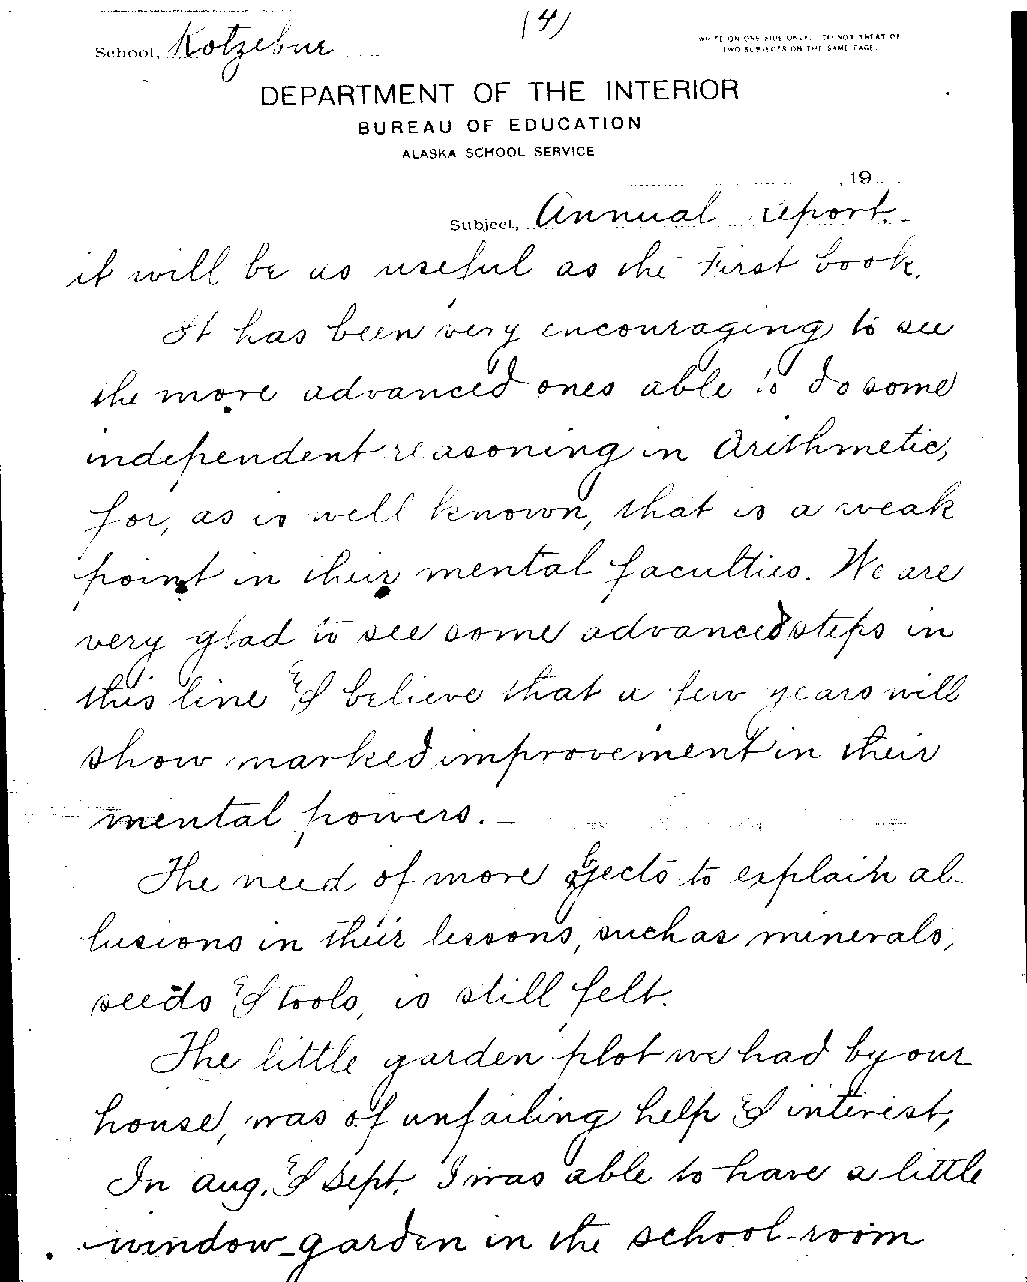 (4)
School, Kotzebue
WRITE ON ONE SIDE ONLY. DO NOT TREAT OF
TWO SUBJECTS ON THE SAME PAGE.
DEPARTMENT OF THE INTERIOR
BUREAU OF EDUCATION
ALASKA SCHOOL SERVICE
, 19
Subject, Annual report.
it will be as useful as the First book.
It has been very encouraging to see
the more advanced ones able to do some
independent reasoning in Arithmetic,
for, as is well known, that is a weak
point in their mental faculties. We are
very glad to see some advanced steps in
this line & believe that a few years will
show marked improvement in their
mental powers. –
The need of more objects to explain al-
lusions in their lessons, such as minerals,
seeds & tools, is still felt.
The little garden plot we had by our
house, was of unfailing help & interest,
In Aug. & Sept. I was able to have a little
window-garden in the school-room